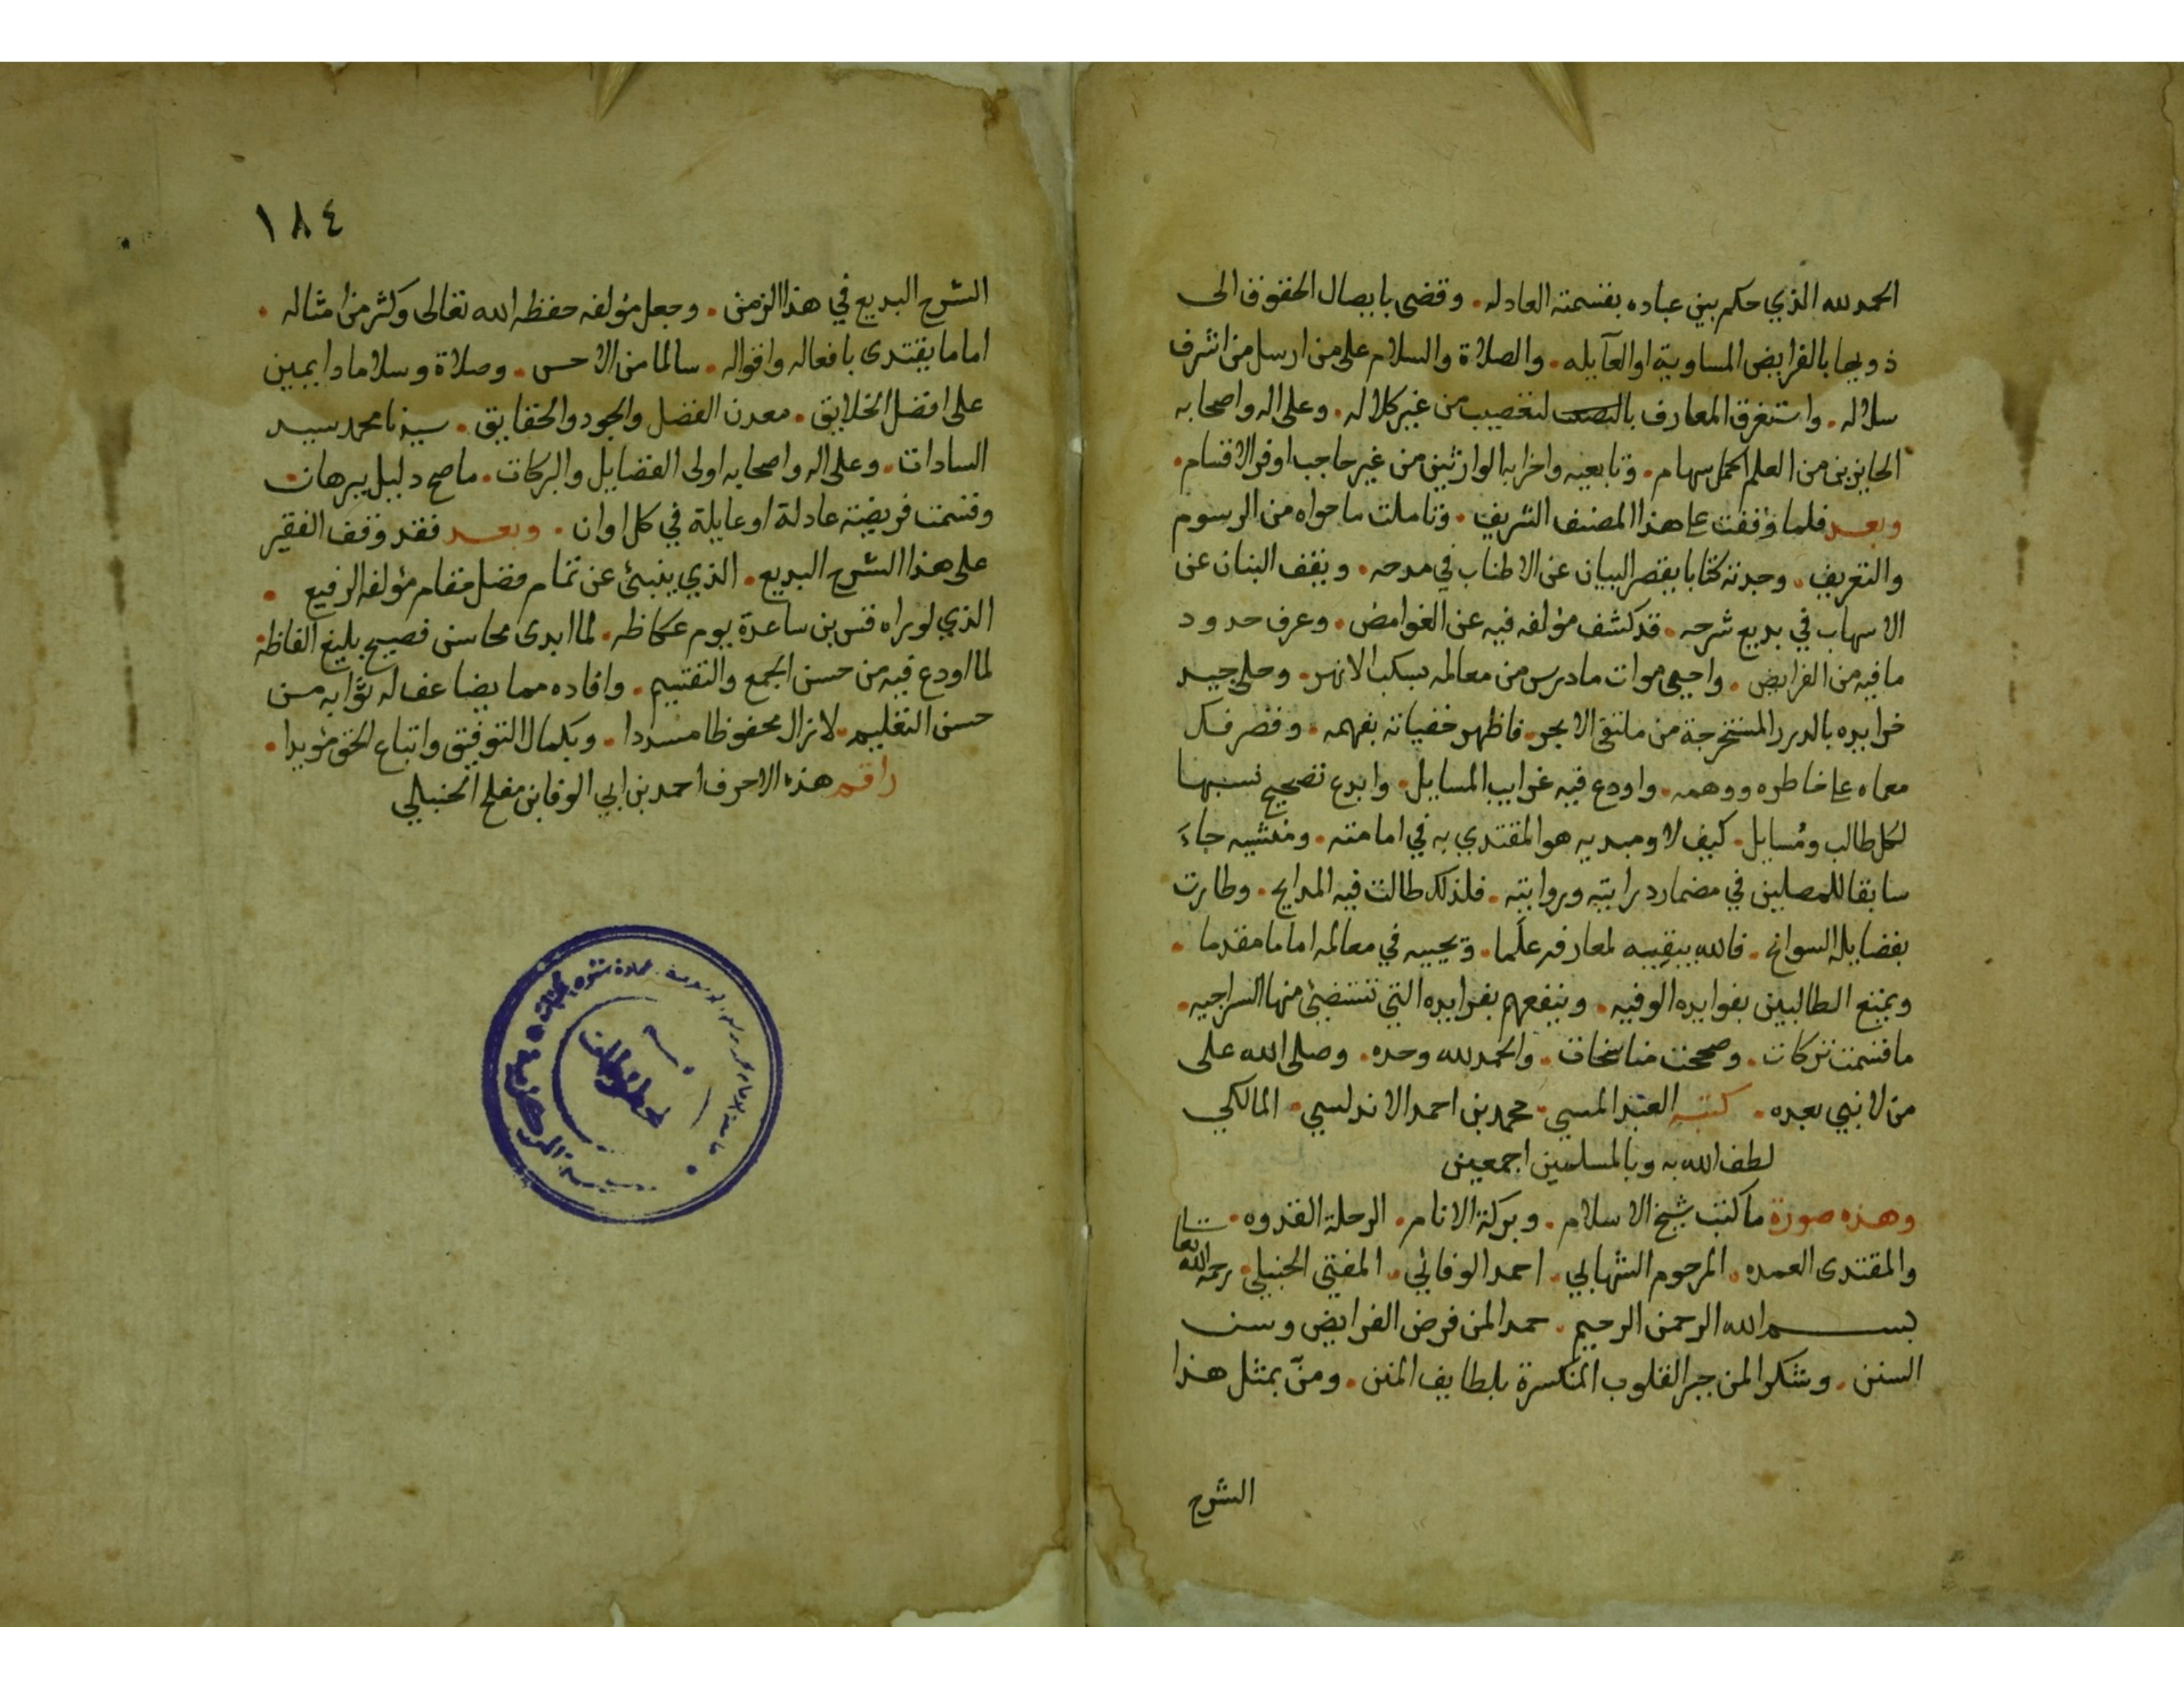 الحمد لله الذي حكم بين عباده بقسمته العادله. وقضى بايصال الحقوق الى
ذويها بالفرايض المساوية او العآيله. والصلاة والسلام على من ارسل من اشرف
سلاله. واستغرق المعارف لتعصيب من غير كلاله. وعلى اله واصحابه
الحايزين من العلم اكمل سهام. وتابعيه واحزابه الوارثين من غير حاجب اوفر الاقسام.
وبعد فلما وقفت على هذا المصنف الشريف. وتاملت ما حواه من الرسوم
والتعريف. وجدته كتابا يقصر البيان عن الاطناب في مدحه. ويقف البنان عن
الاسهاب في بديع شرحه. قد كشف مؤلفه فيه عن الغوامض. وعرف حدود
ما فيه من الفرايض. واحيى موات ما درس من معالمه بسكب الانهر. وحلى جيد
فرايده بالدرر المستخرجة من ملتقى الابحر. فاظهر خفياته بفهمه. وقصر فك
معماه على خاطره ووهمه. واودع فيه غرايب المسايل. وابدع تصحيح نسبها
لكل طالب ومُسايل. كيف لا ومبديه هو المقتدي به في امامته. ومنشيه جاءَ
سابقا للمصلين في مضمار درايته وروايته. فلذلك طالت فيه المدايح. وطارت
بفضايله السوانح. فالله يبقيه لمعارفه علَما. ويحييه في معالمه اماما مقدما.
ويمتع الطالبين بفوايده الوفيه. وينفعهم بفرايده التي تستضئ منها السراجيه.
ما قسمت تركات. وصححت مناسخات. والحمد لله وحده. وصلى الله على
من لا نبي بعده. كتبه العبد المسي. محمد بن احمد الاندلسي. المالكي
لطف الله به وبالمسلمين اجمعين
وهذه صورة ما كتب شيخ الاسلام. وبركة الانام. الرحلة القدوه.
والمقتدى العمده. المرحوم الشهابي. احمد الوفائي. المفتي الحنبلي. رحمه الله تعالى
بسم الله الرحمن الرحيم. حمدا لمن فرض الفرايض وسن
السنن. وشكرا لمن جبر القلوب المنكسرة بلطايف المنن. ومنّ بمثل هذا
الشرح
١٨٤
الشرح البديع في هذا الزمن. وجعل مؤلفه حفظه الله تعالى وكثر من امثاله.
اماما يقتدى بافعاله واقواله. سالما من الاحسن. وصلاة وسلاما دايمين
على افضل الخلايق. معدن الفضل والجود والحقايق. سيدنا محمد سيد
السادات. وعلى اله واصحابه اولى الفضايل والبركات. ما صح دليل ببرهان
وقسمت فريضة عادلة او عايلة في كل اوان. وبعد فقد وقف الفقير
على هذا الشرح البديع. الذي ينبئ عن تمام فضل مقام مؤلفه الرفيع.
الذي لو يراه قس بن ساعدة يوم عكاظه. لما ابدى محاسن فصيح بليغ الفاظه
لما اودع فيه من حسن الجمع والتقسيم. وافاده مما يضاعف له ثوابه من
حسن التعليم. لا زال محفوظا مسددا. وبكمال التوفيق واتباع الحق مؤيدا.
راقمه هذه الاحرف احمد بن ابي الوفا بن مفلح الحنبلي